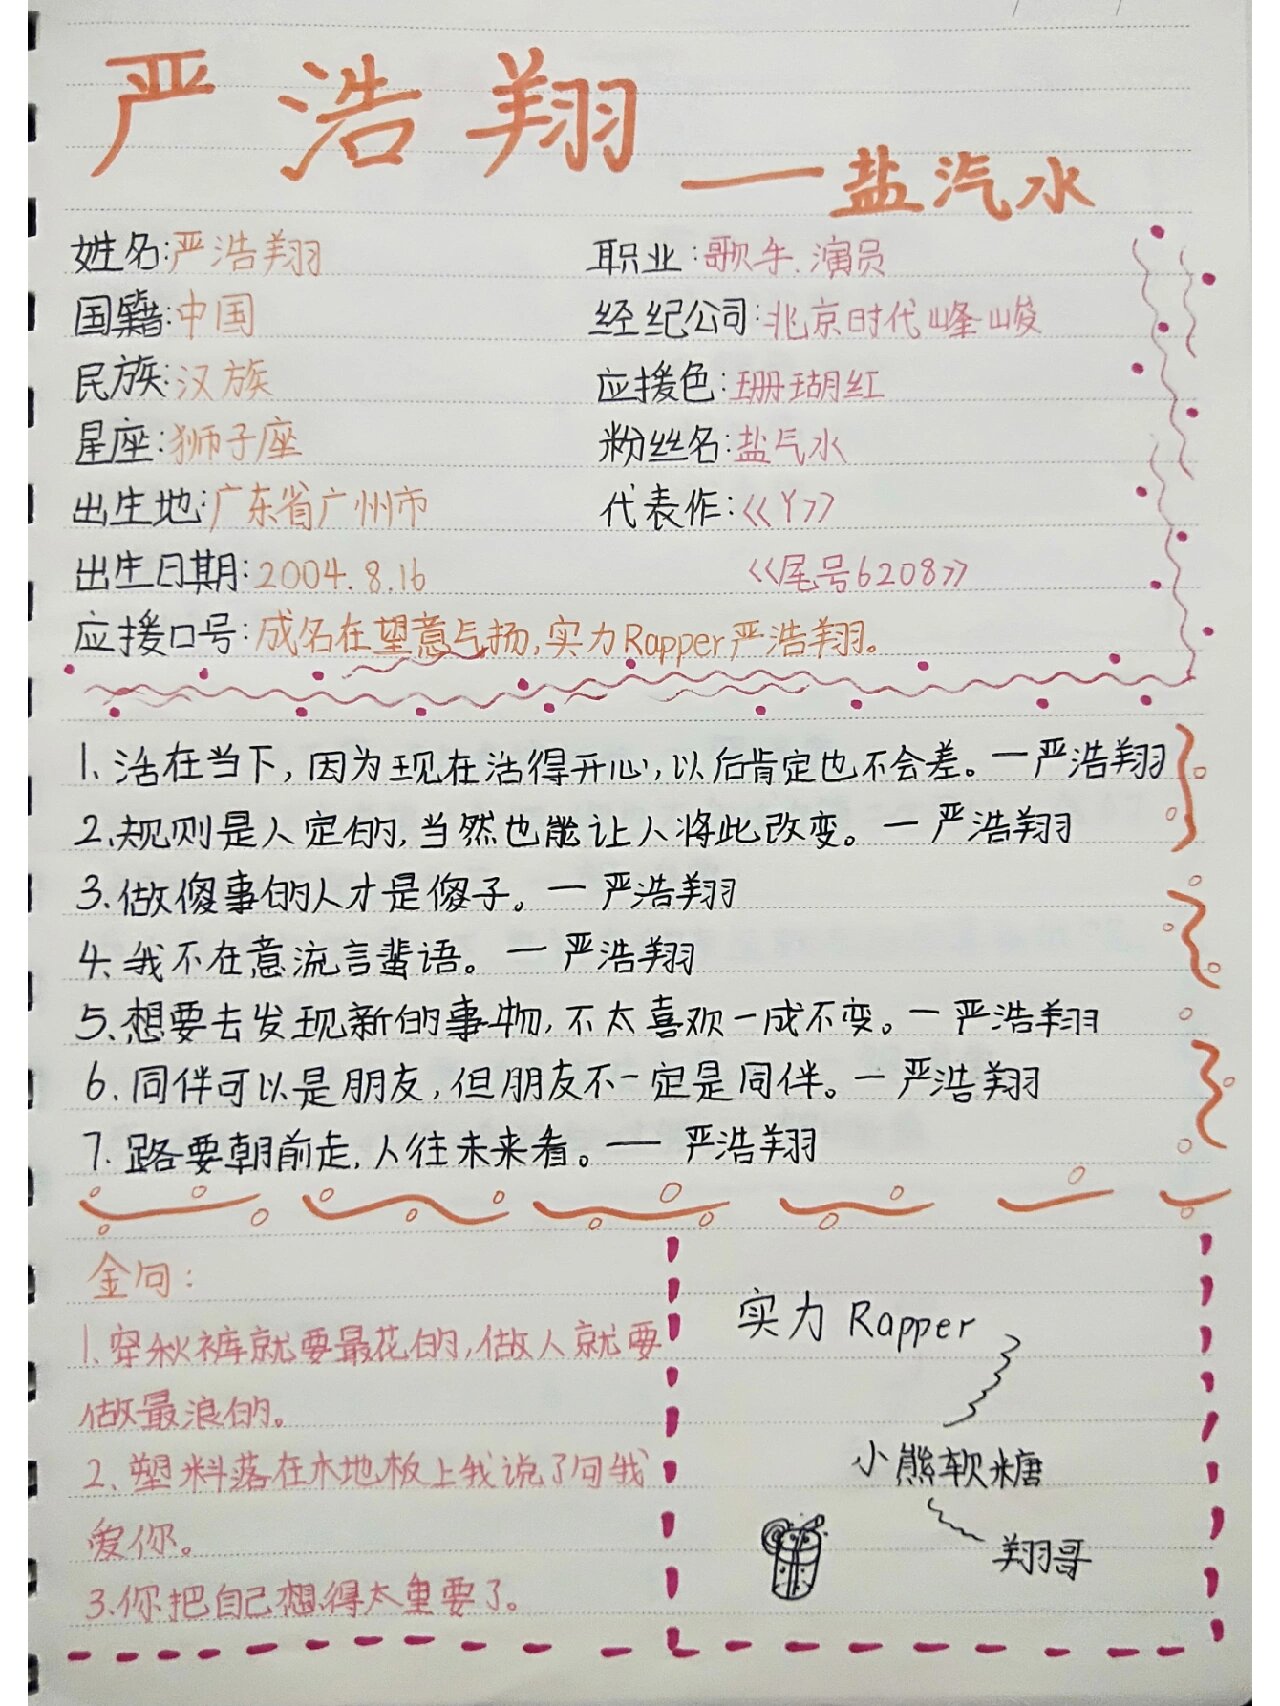 严浩翔
——盐汽水
姓名:严浩翔
国籍:中国
民族:汉族
星座:狮子座
出生地:广东省广州市
出生日期:2004.8.16
职业:歌手、演员
经纪公司:北京时代峰峻
应援色:珊瑚红
粉丝名:盐气水
代表作:《Y》
《尾号6208》
应援口号:成名在望意气扬,实力Rapper严浩翔。
1.活在当下,因为现在活得开心,以后肯定也不会差。—严浩翔
2.规则是人定的,当然也能让人将此改变。—严浩翔
3.做傻事的人才是傻子。—严浩翔
4.我不在意流言蜚语。—严浩翔
5.想要去发现新的事物,不太喜欢一成不变。—严浩翔
6.同伴可以是朋友,但朋友不一定是同伴。—严浩翔
7.路要朝前走,人往未来看。——严浩翔
金句:
1.穿秋裤就要最花的,做人就要
做最浪的。
2.塑料落在木地板上我说了句我
爱你。
3.你把自己想得太重要了。
实力Rapper
小熊软糖
翔哥